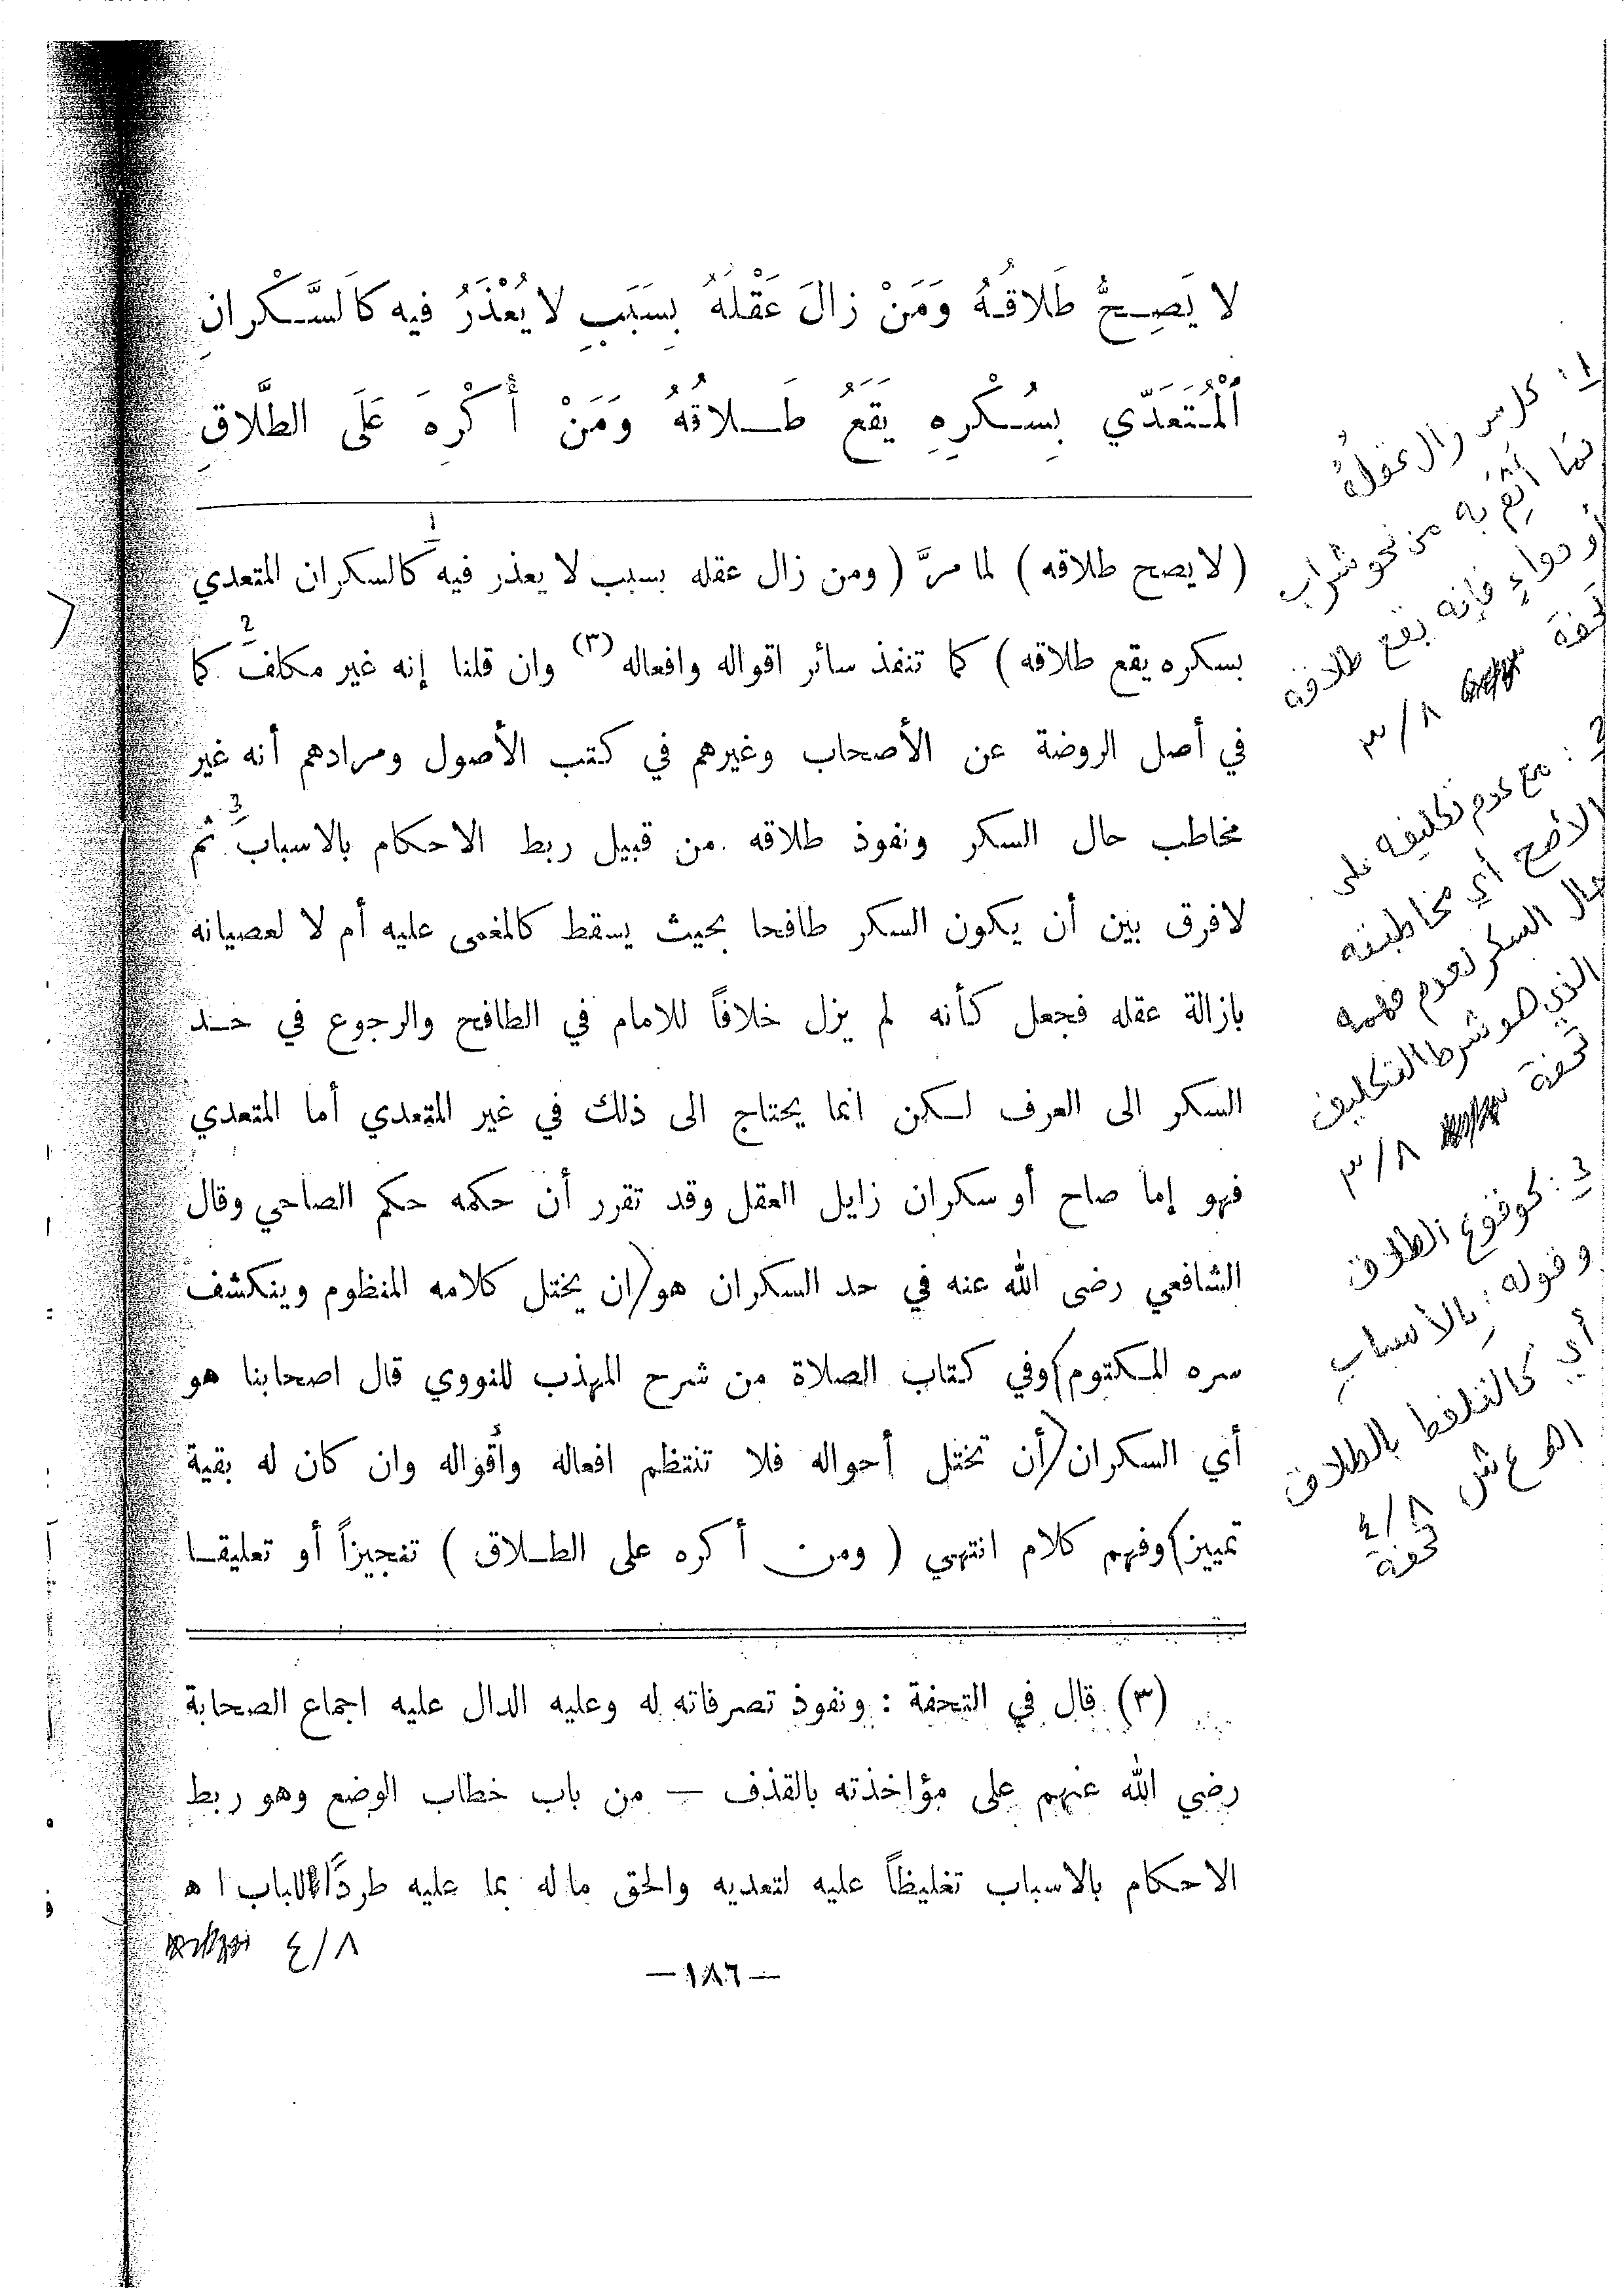 لا يَصِحُّ طَلاقُهُ وَمَنْ زالَ عَقْلُهُ بِسَبَبٍ لا يُعْذَرُ فيه كَالسَّكْرانِ
اَلْمُتَعَدّي بِسُكْرِهِ يَقَعُ طَلاقُهُ وَمَنْ أُكْرِهَ عَلَى الطَّلاقِ
(لا يصح طلاقه) لما مرَّ (ومن زال عقله بسبب لا يعذر فيه 1 كالسكران المتعدي
بسكره يقع طلاقه) كما تنفذ سائر اقواله وافعاله (٣) وان قلنا إنه غير مكلف 2 كما
في أصل الروضة عن الأصحاب وغيرهم في كتب الأصول ومرادهم أنه غير
مخاطب حال السكر ونفوذ طلاقه من قبيل ربط الاحكام بالاسباب 3 ثم
لافرق بين أن يكون السكر طافحا بحيث يسقط كالمغمى عليه أم لا لعصيانه
بازالة عقله فجعل كأنه لم يزل خلافاً للامام في الطافح والرجوع في حد
السكر الى العرف لكن انما يحتاج الى ذلك في غير المتعدي أما المتعدي
فهو إما صاح أو سكران زايل العقل وقد تقرر أن حكمه حكم الصاحي وقال
الشافعي رضى الله عنه في حد السكران هو (ان يختل كلامه المنظوم وينكشف
سره المكتوم) وفي كتاب الصلاة من شرح المهذب للنووي قال اصحابنا هو
أي السكران (أن تختل أحواله فلا تنتظم افعاله وأقواله وان كان له بقية
تمييز) وفهم كلام انتهى (ومن أكره على الطلاق) تنجيزاً أو تعليقا
(٣) قال في التحفة : ونفوذ تصرفاته له وعليه الدال عليه اجماع الصحابة
رضي الله عنهم على مؤاخذته بالقذف — من باب خطاب الوضع وهو ربط
الاحكام بالاسباب تغليظاً عليه لتعديه والحق ماله بما عليه طرداً للباب اه
٤/٨
—١٨٦—
1: كل من زال عقلُهُ
بما أَثِمَ به من نحو شراب
أو دواءٍ فإنه يقع طلاقه
تحفة
٣/٨
2: مع عدم تكليفه على
الأصح أي مخاطبته
حال السكر لعدم فهمه
الذي هو شرط التكليف
تحفة
٣/٨
3: كوقوع الطلاق
وقوله: بالأسبابِ
أي كالتلفظ بالطلاق
اهـ ع ش
٤/٨
تحفة